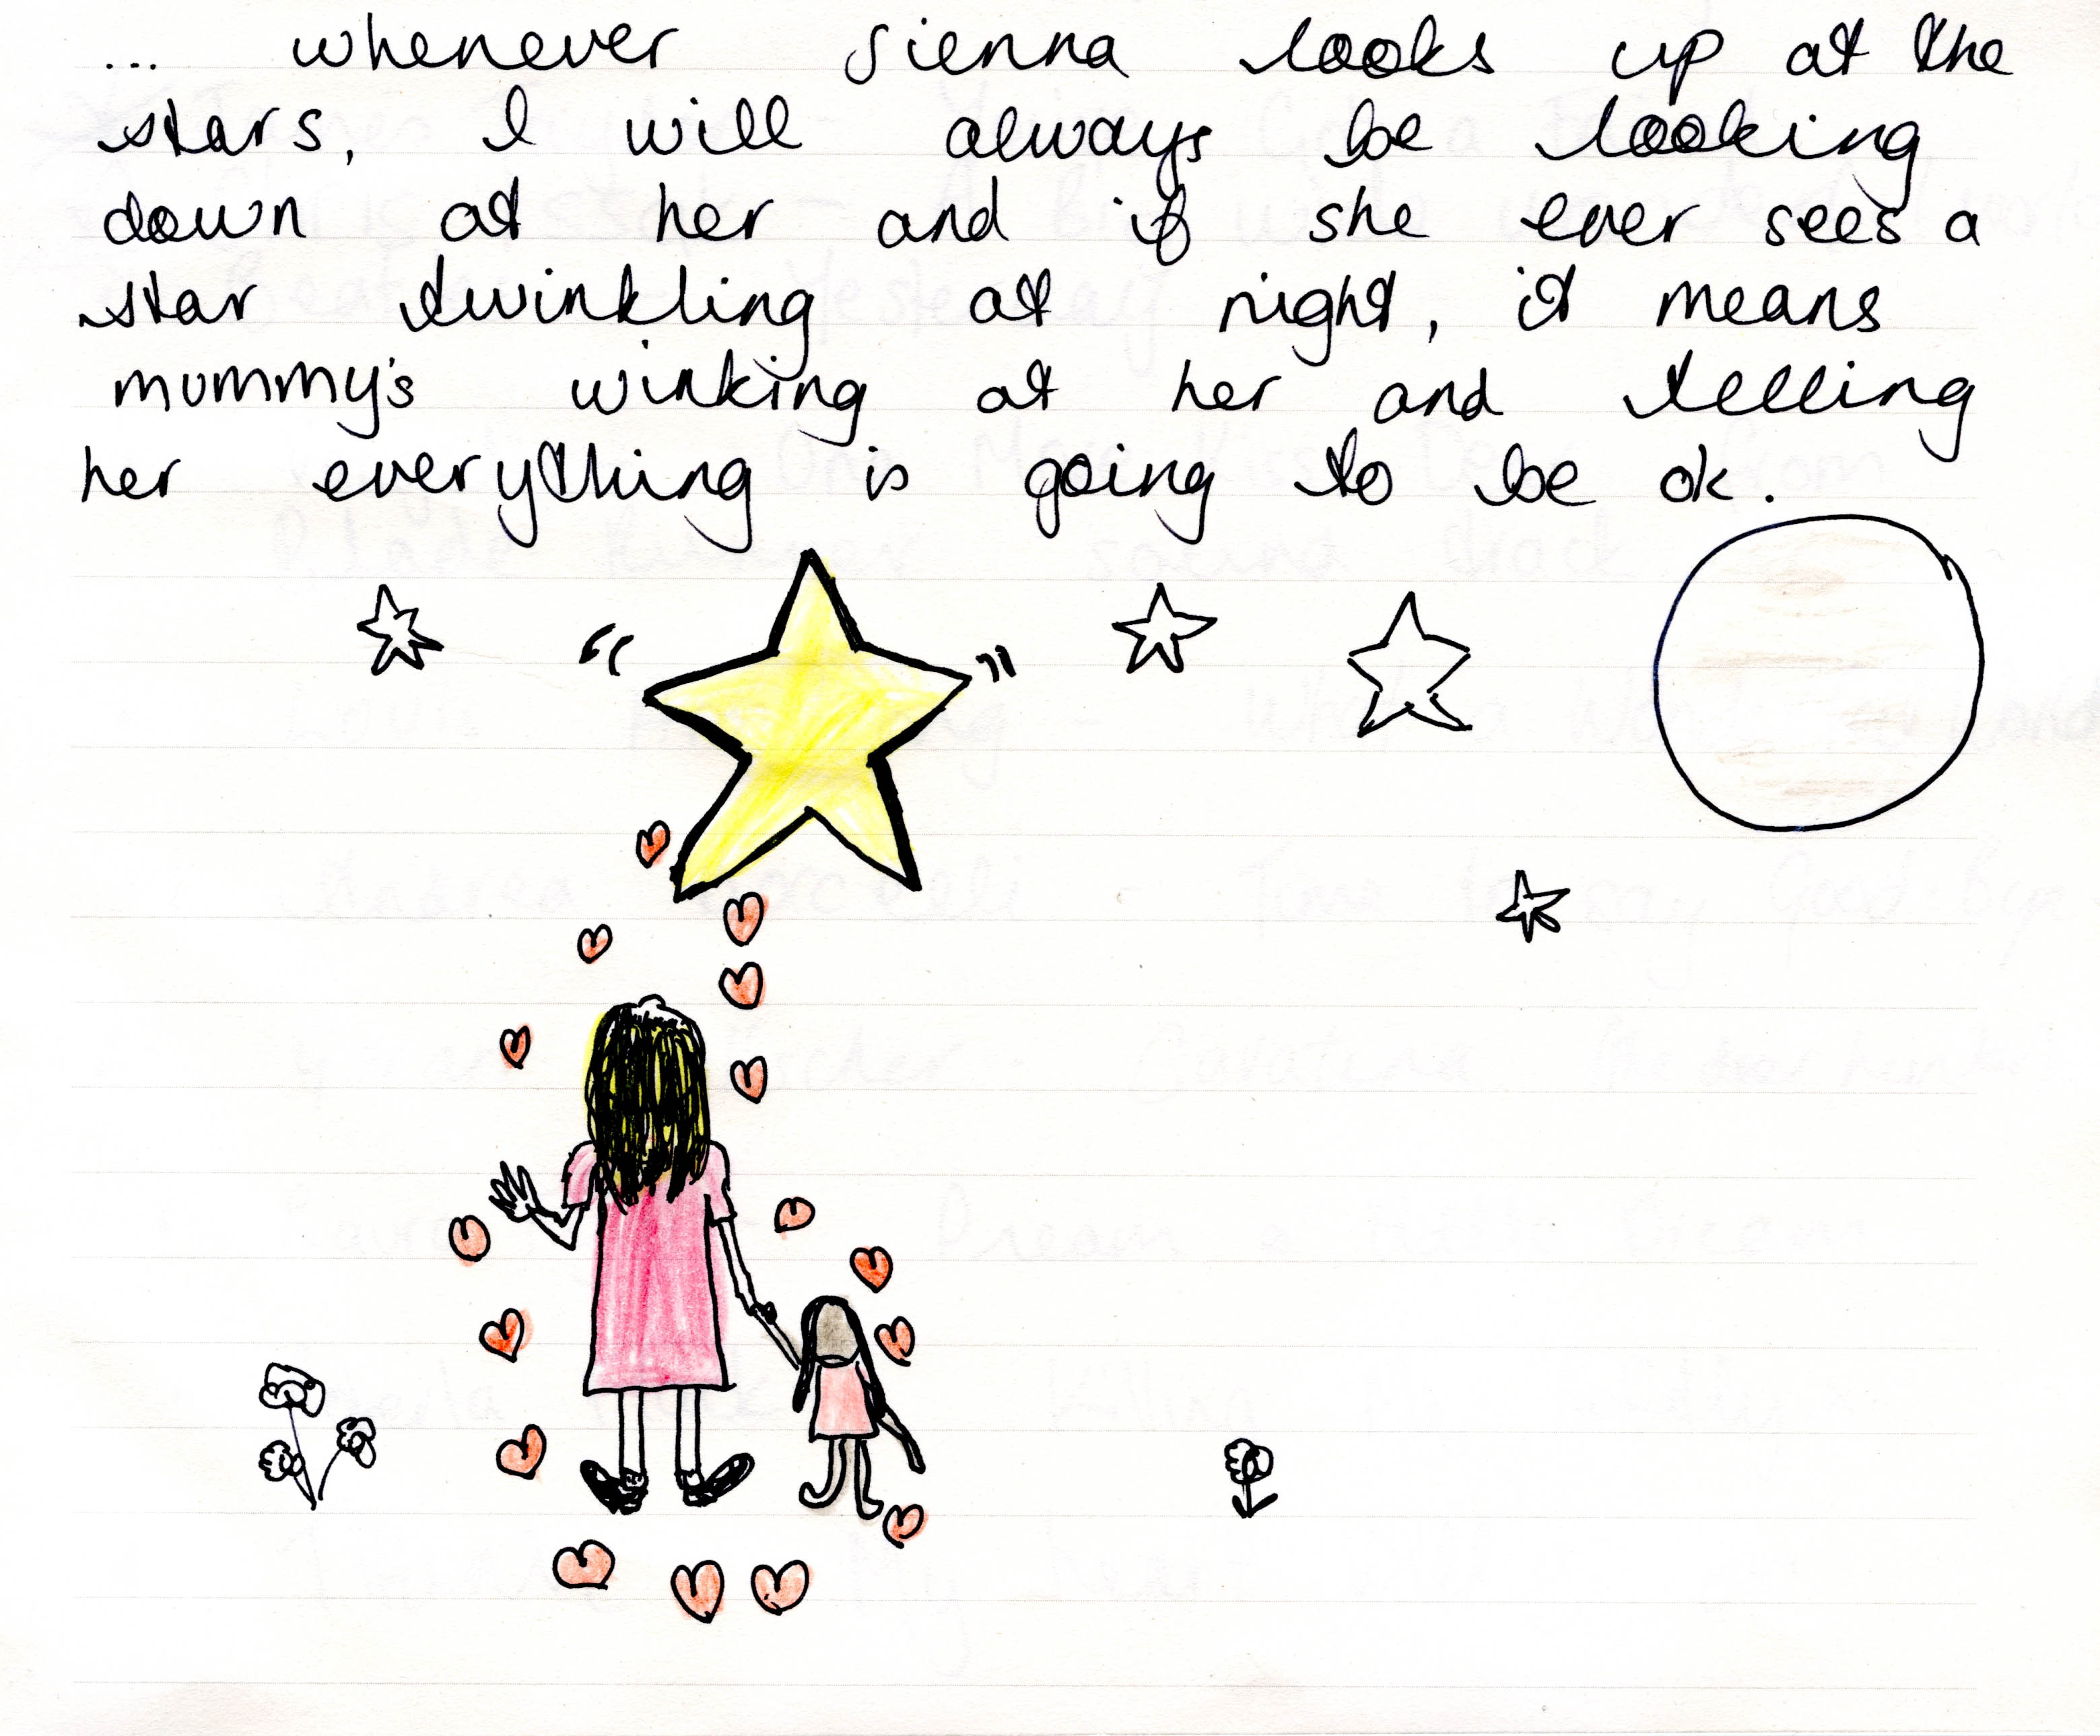 ... whenever Sienna looks up at the
stars, I will always be looking
down at her and if she ever sees a
star twinkling at night, it means
mummy's winking at her and telling
her everything is going to be ok.